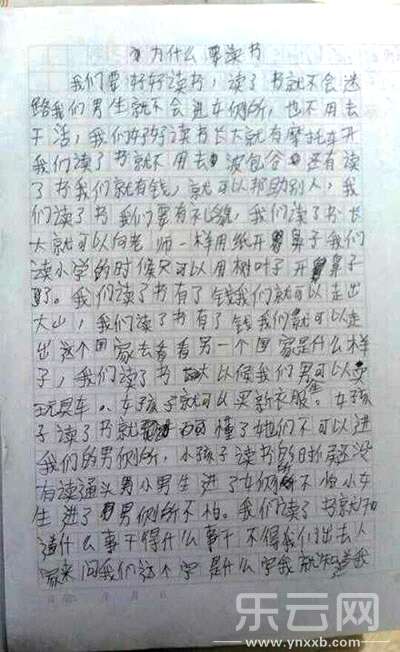 为什么要读书
我们要好好读书，读了书就不会迷
路我们男生就不会进女侧所，也不用去
干活，我们好好读书长大就有摩托车开
我们读了书就不用去波包谷还有读
了书我们就有钱，就可以帮助别人，我
们读了书我们要有礼貌，我们读了书长
大就可以向老师一样用纸开鼻子我们
读小学的时候只可以用树叶子开鼻子
。我们读了书有了钱我们就可以走出
大山，我们读了书有了钱我们就可以走
出这个国家去看看另一个国家是什么样
子，我们读了书大以侯我们男可以
玩具车。女孩子就可以买新衣服。女孩
子读了书就懂了她们不可以进
我们的男侧所，小孩子读书的时候还没
有读通头男小男生进了女侧所不怕小女
生进了男侧所不怕。我们读了书就知
道什么事干得什么事干不得我们出去人
家来问我们这个字是什么字我就知道我
乐云网
www.ynxxb.com